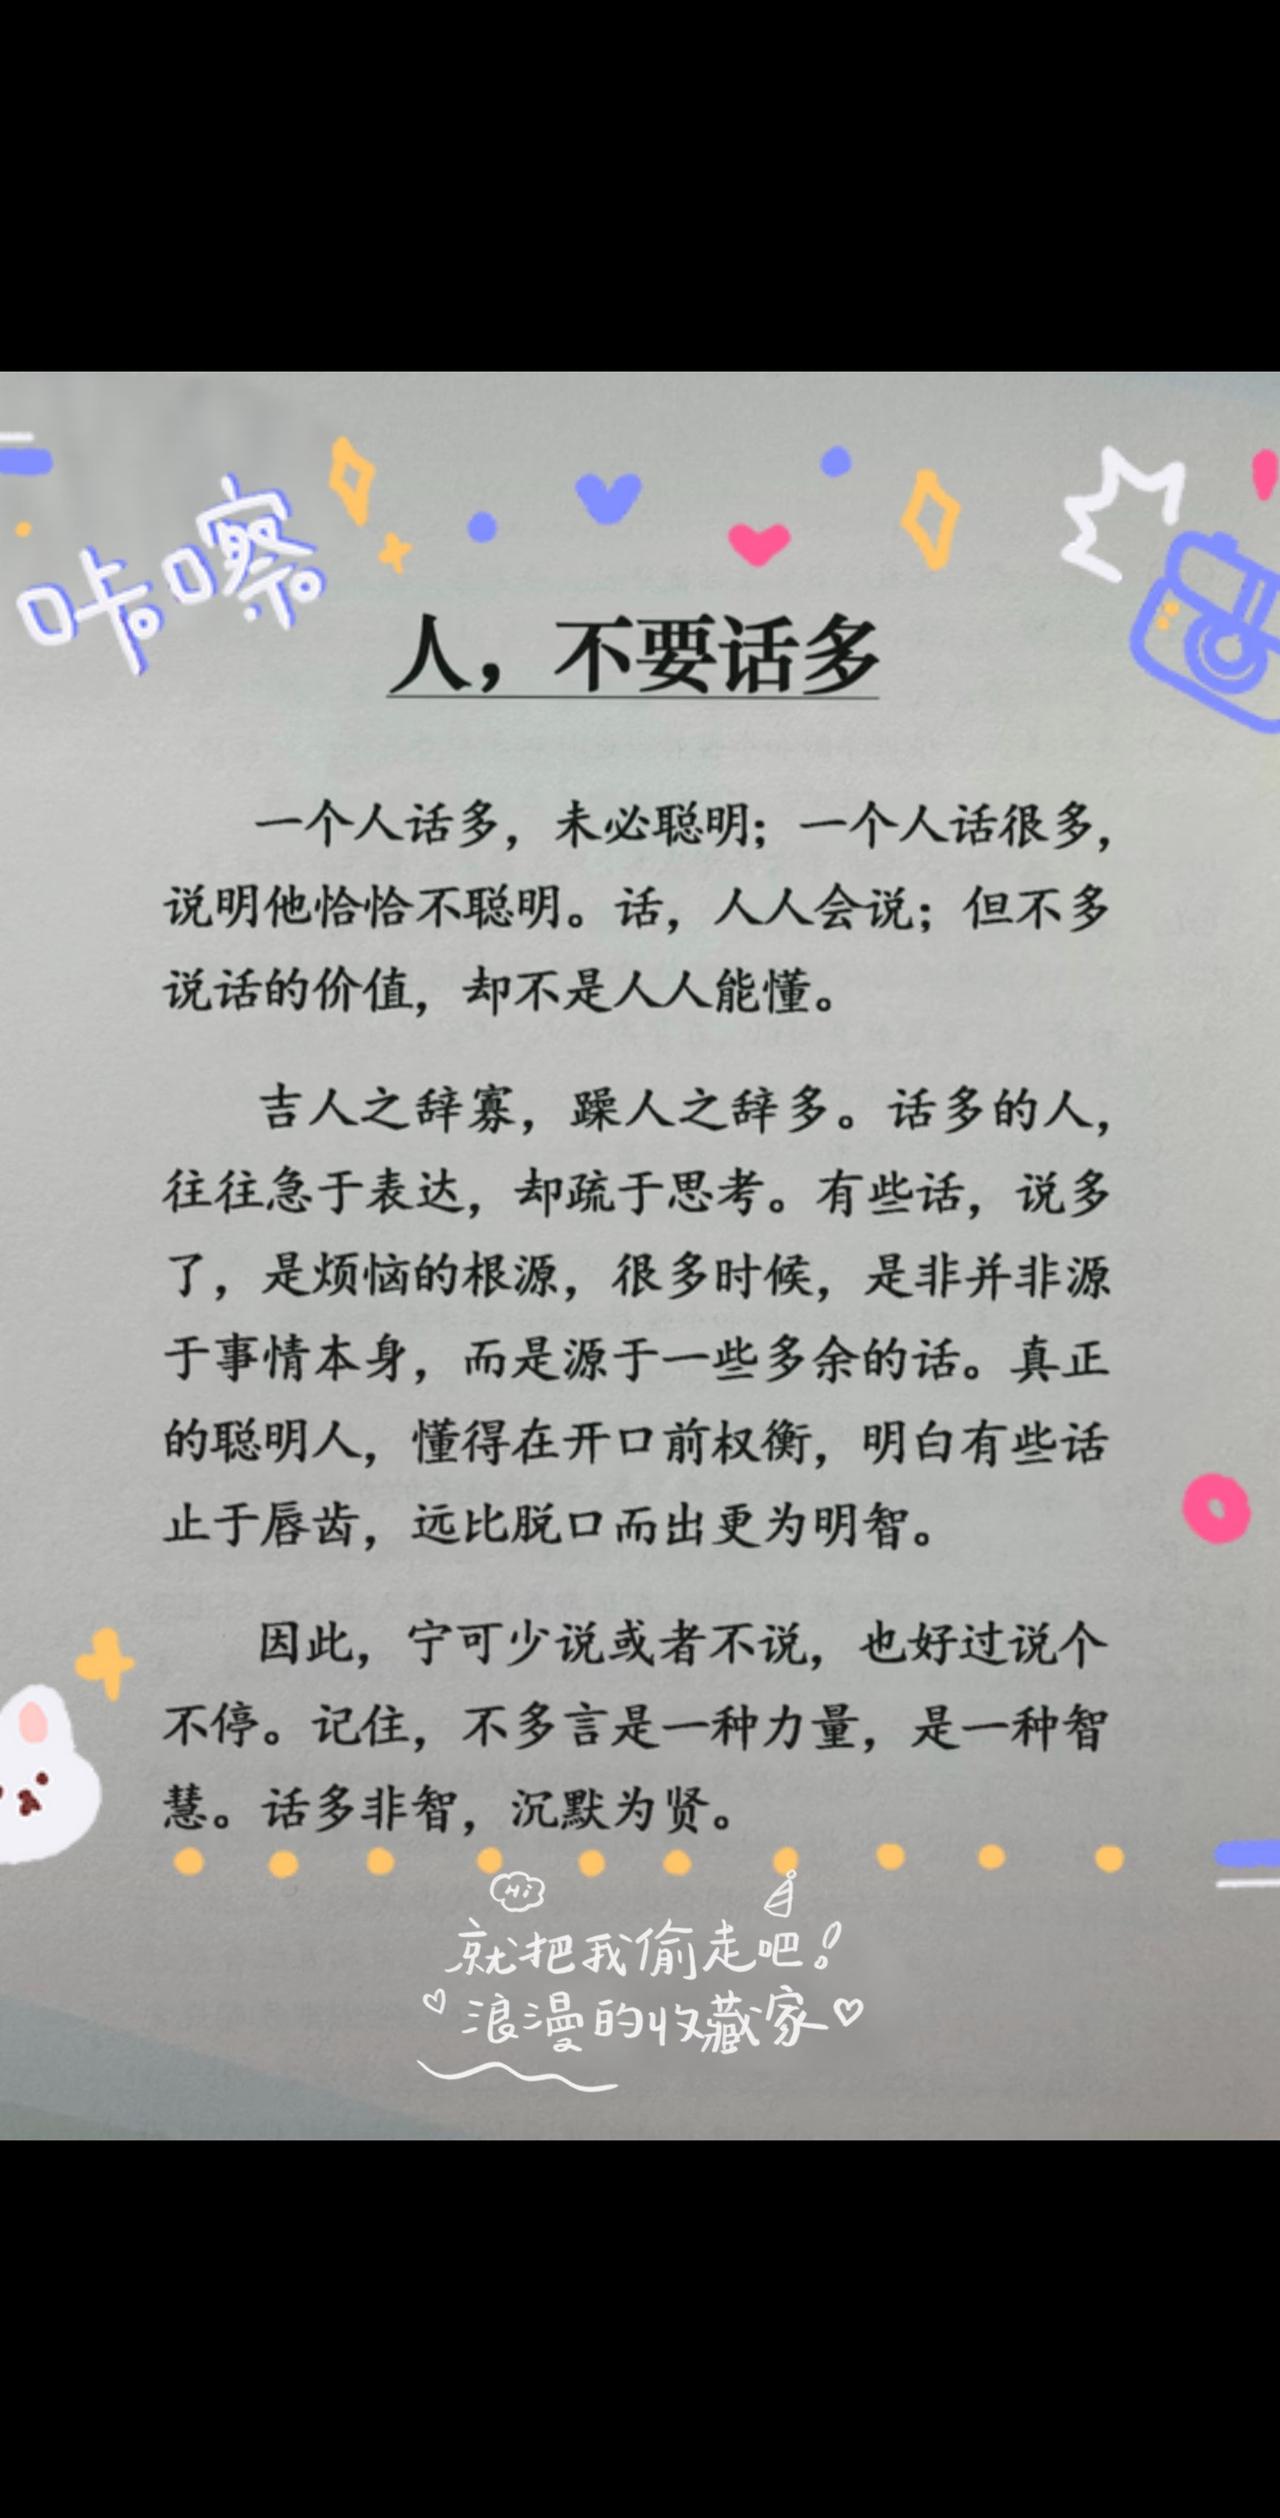 咔嚓
人，不要话多
一个人话多，未必聪明；一个人话很多，
说明他恰恰不聪明。话，人人会说；但不多
说话的价值，却不是人人能懂。
吉人之辞寡，躁人之辞多。话多的人，
往往急于表达，却疏于思考。有些话，说多
了，是烦恼的根源，很多时候，是非并非源
于事情本身，而是源于一些多余的话。真正
的聪明人，懂得在开口前权衡，明白有些话
止于唇齿，远比脱口而出更为明智。
因此，宁可少说或者不说，也好过说个
不停。记住，不多言是一种力量，是一种智
慧。话多非智，沉默为贤。
Hi
就把我偷走吧！
浪漫的收藏家